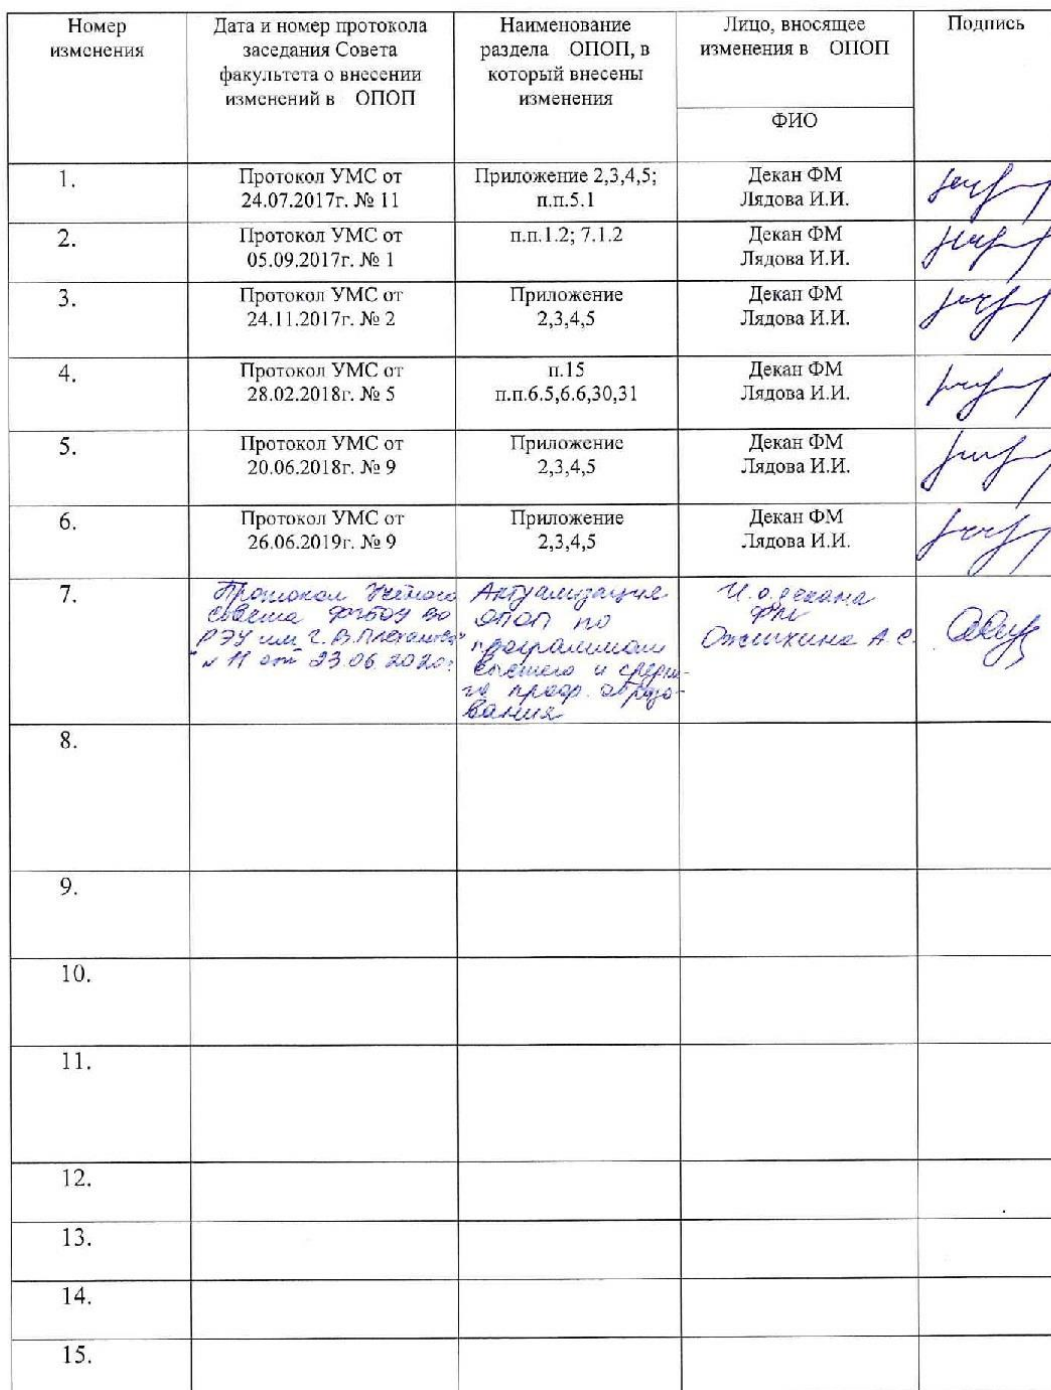 Номер
изменения
Дата и номер протокола
заседания Совета
факультета о внесении
изменений в ОПОП
Наименование
раздела ОПОП, в
который внесены
изменения
Лицо, вносящее
изменения в ОПОП
ФИО
Подпись
1.
Протокол УМС от
24.07.2017г. № 11
Приложение 2,3,4,5;
п.п.5.1
Декан ФМ
Лядова И.И.
2.
Протокол УМС от
05.09.2017г. № 1
п.п.1.2; 7.1.2
Декан ФМ
Лядова И.И.
3.
Протокол УМС от
24.11.2017г. № 2
Приложение
2,3,4,5
Декан ФМ
Лядова И.И.
4.
Протокол УМС от
28.02.2018г. № 5
п.15
п.п.6.5,6.6,30,31
Декан ФМ
Лядова И.И.
5.
Протокол УМС от
20.06.2018г. № 9
Приложение
2,3,4,5
Декан ФМ
Лядова И.И.
6.
Протокол УМС от
26.06.2019г. № 9
Приложение
2,3,4,5
Декан ФМ
Лядова И.И.
7.
Протокол Учёного
совета ФГБОУ ВО
РЭУ им. Г.В. Плеханова"
№ 11 от 23.06.2020г.
Актуализация
ОПОП по
программам
высшего и средне-
го проф. образо-
вания
И.о. декана
ФМ
А.С.
8.
9.
10.
11.
12.
13.
14.
15.